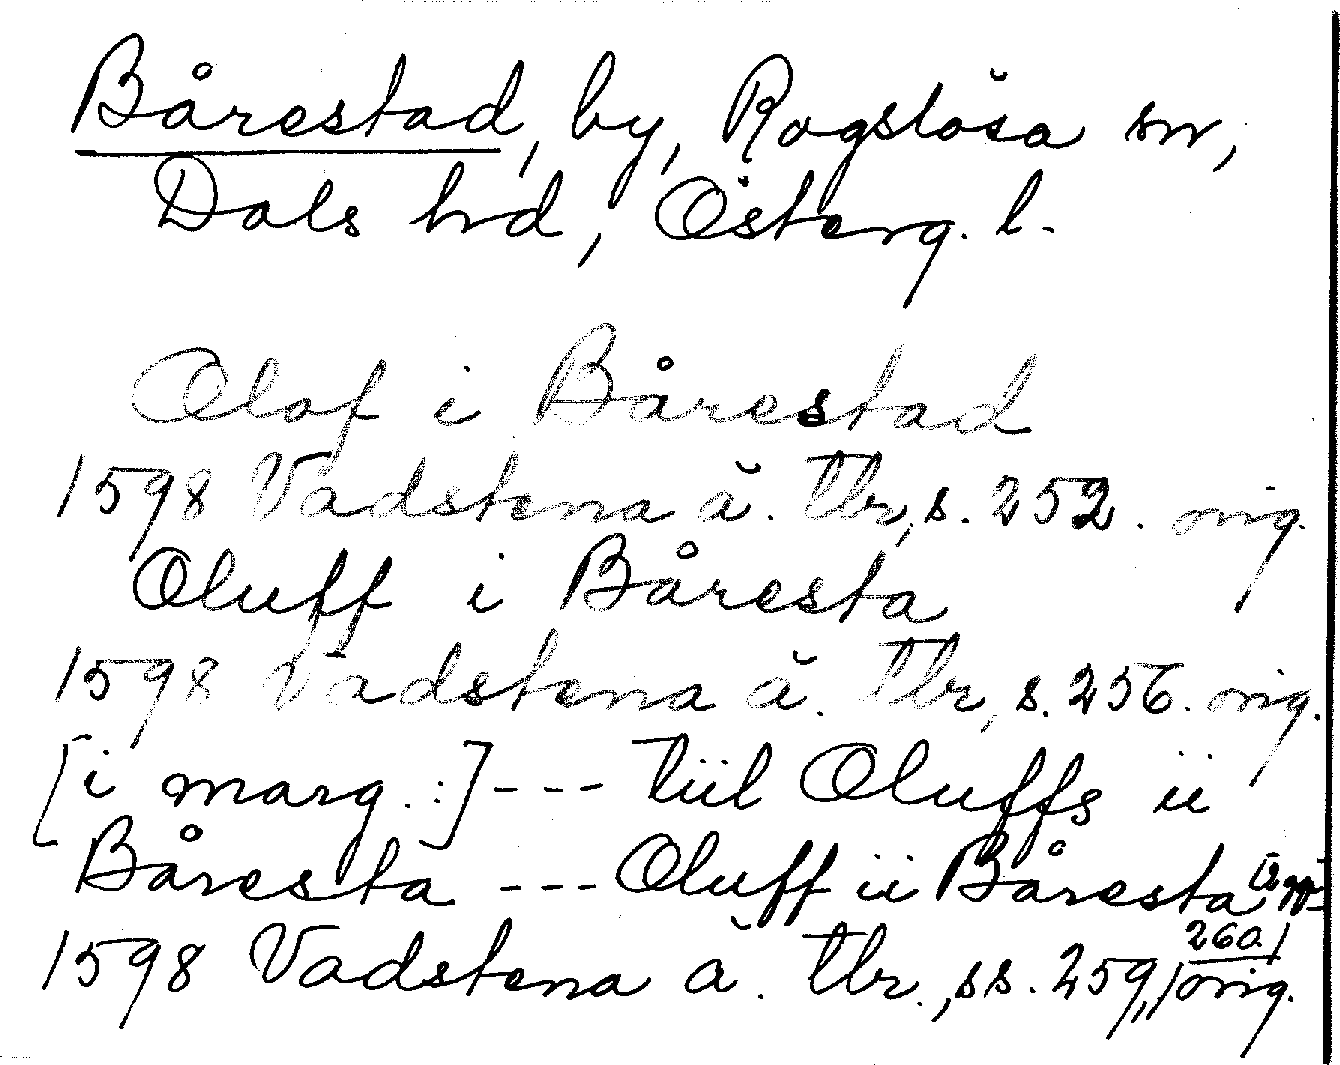 Bårestad, by, Rogslösa sn,
Dals hd, Österg. l.
Olof i Bårestad
1598 Vadstena ä. tbr, s. 252. orig.
Oluff i Båresta
1598 Vadstena ä. tbr, s. 256. orig.
[i marg.:] --- tiil Oluffs ii
Båresta --- Oluff ii Båresta
1598 Vadstena ä. tbr., ss. 259, 260. orig.